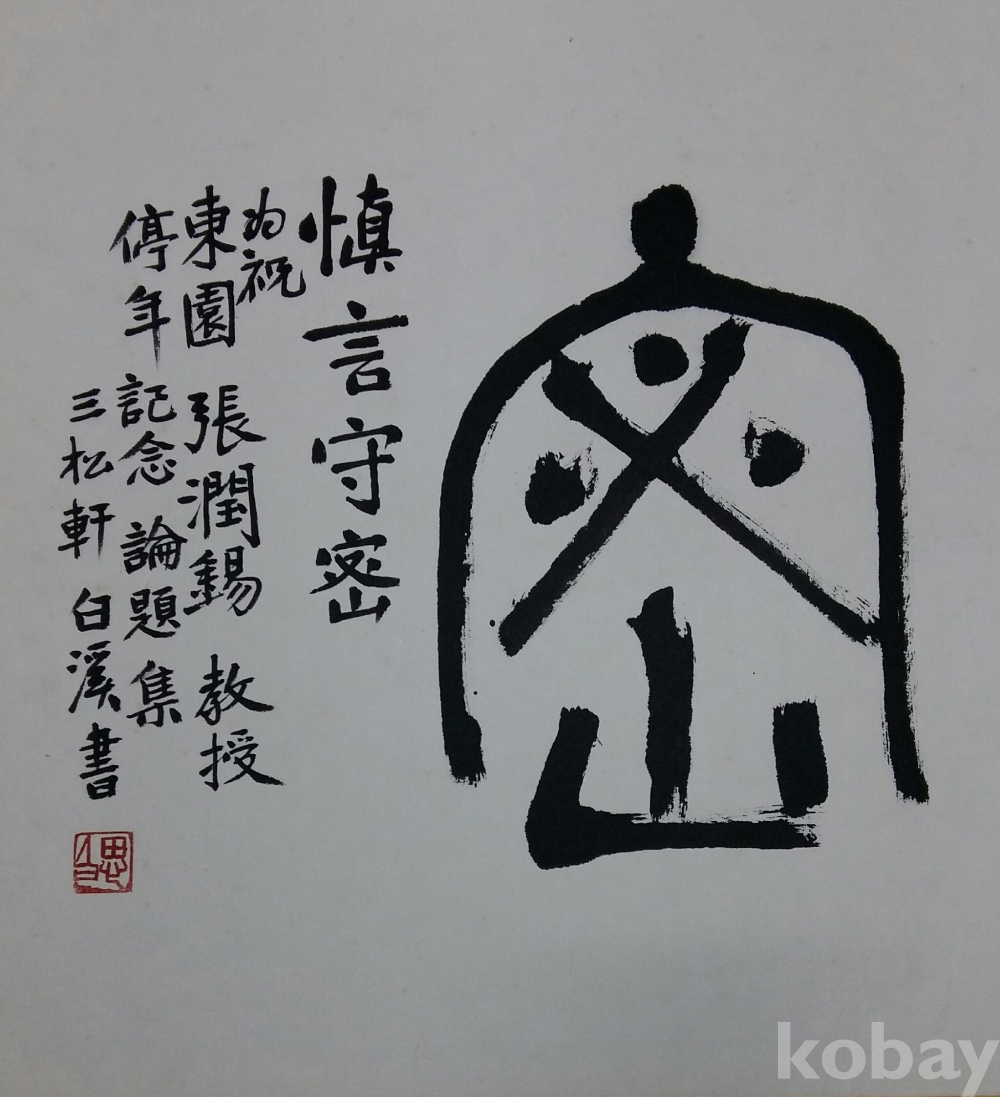 密
慎言守密
為祝
東園 張潤錫 教授
停年記念 論題集
三松軒 白溪書
kobay